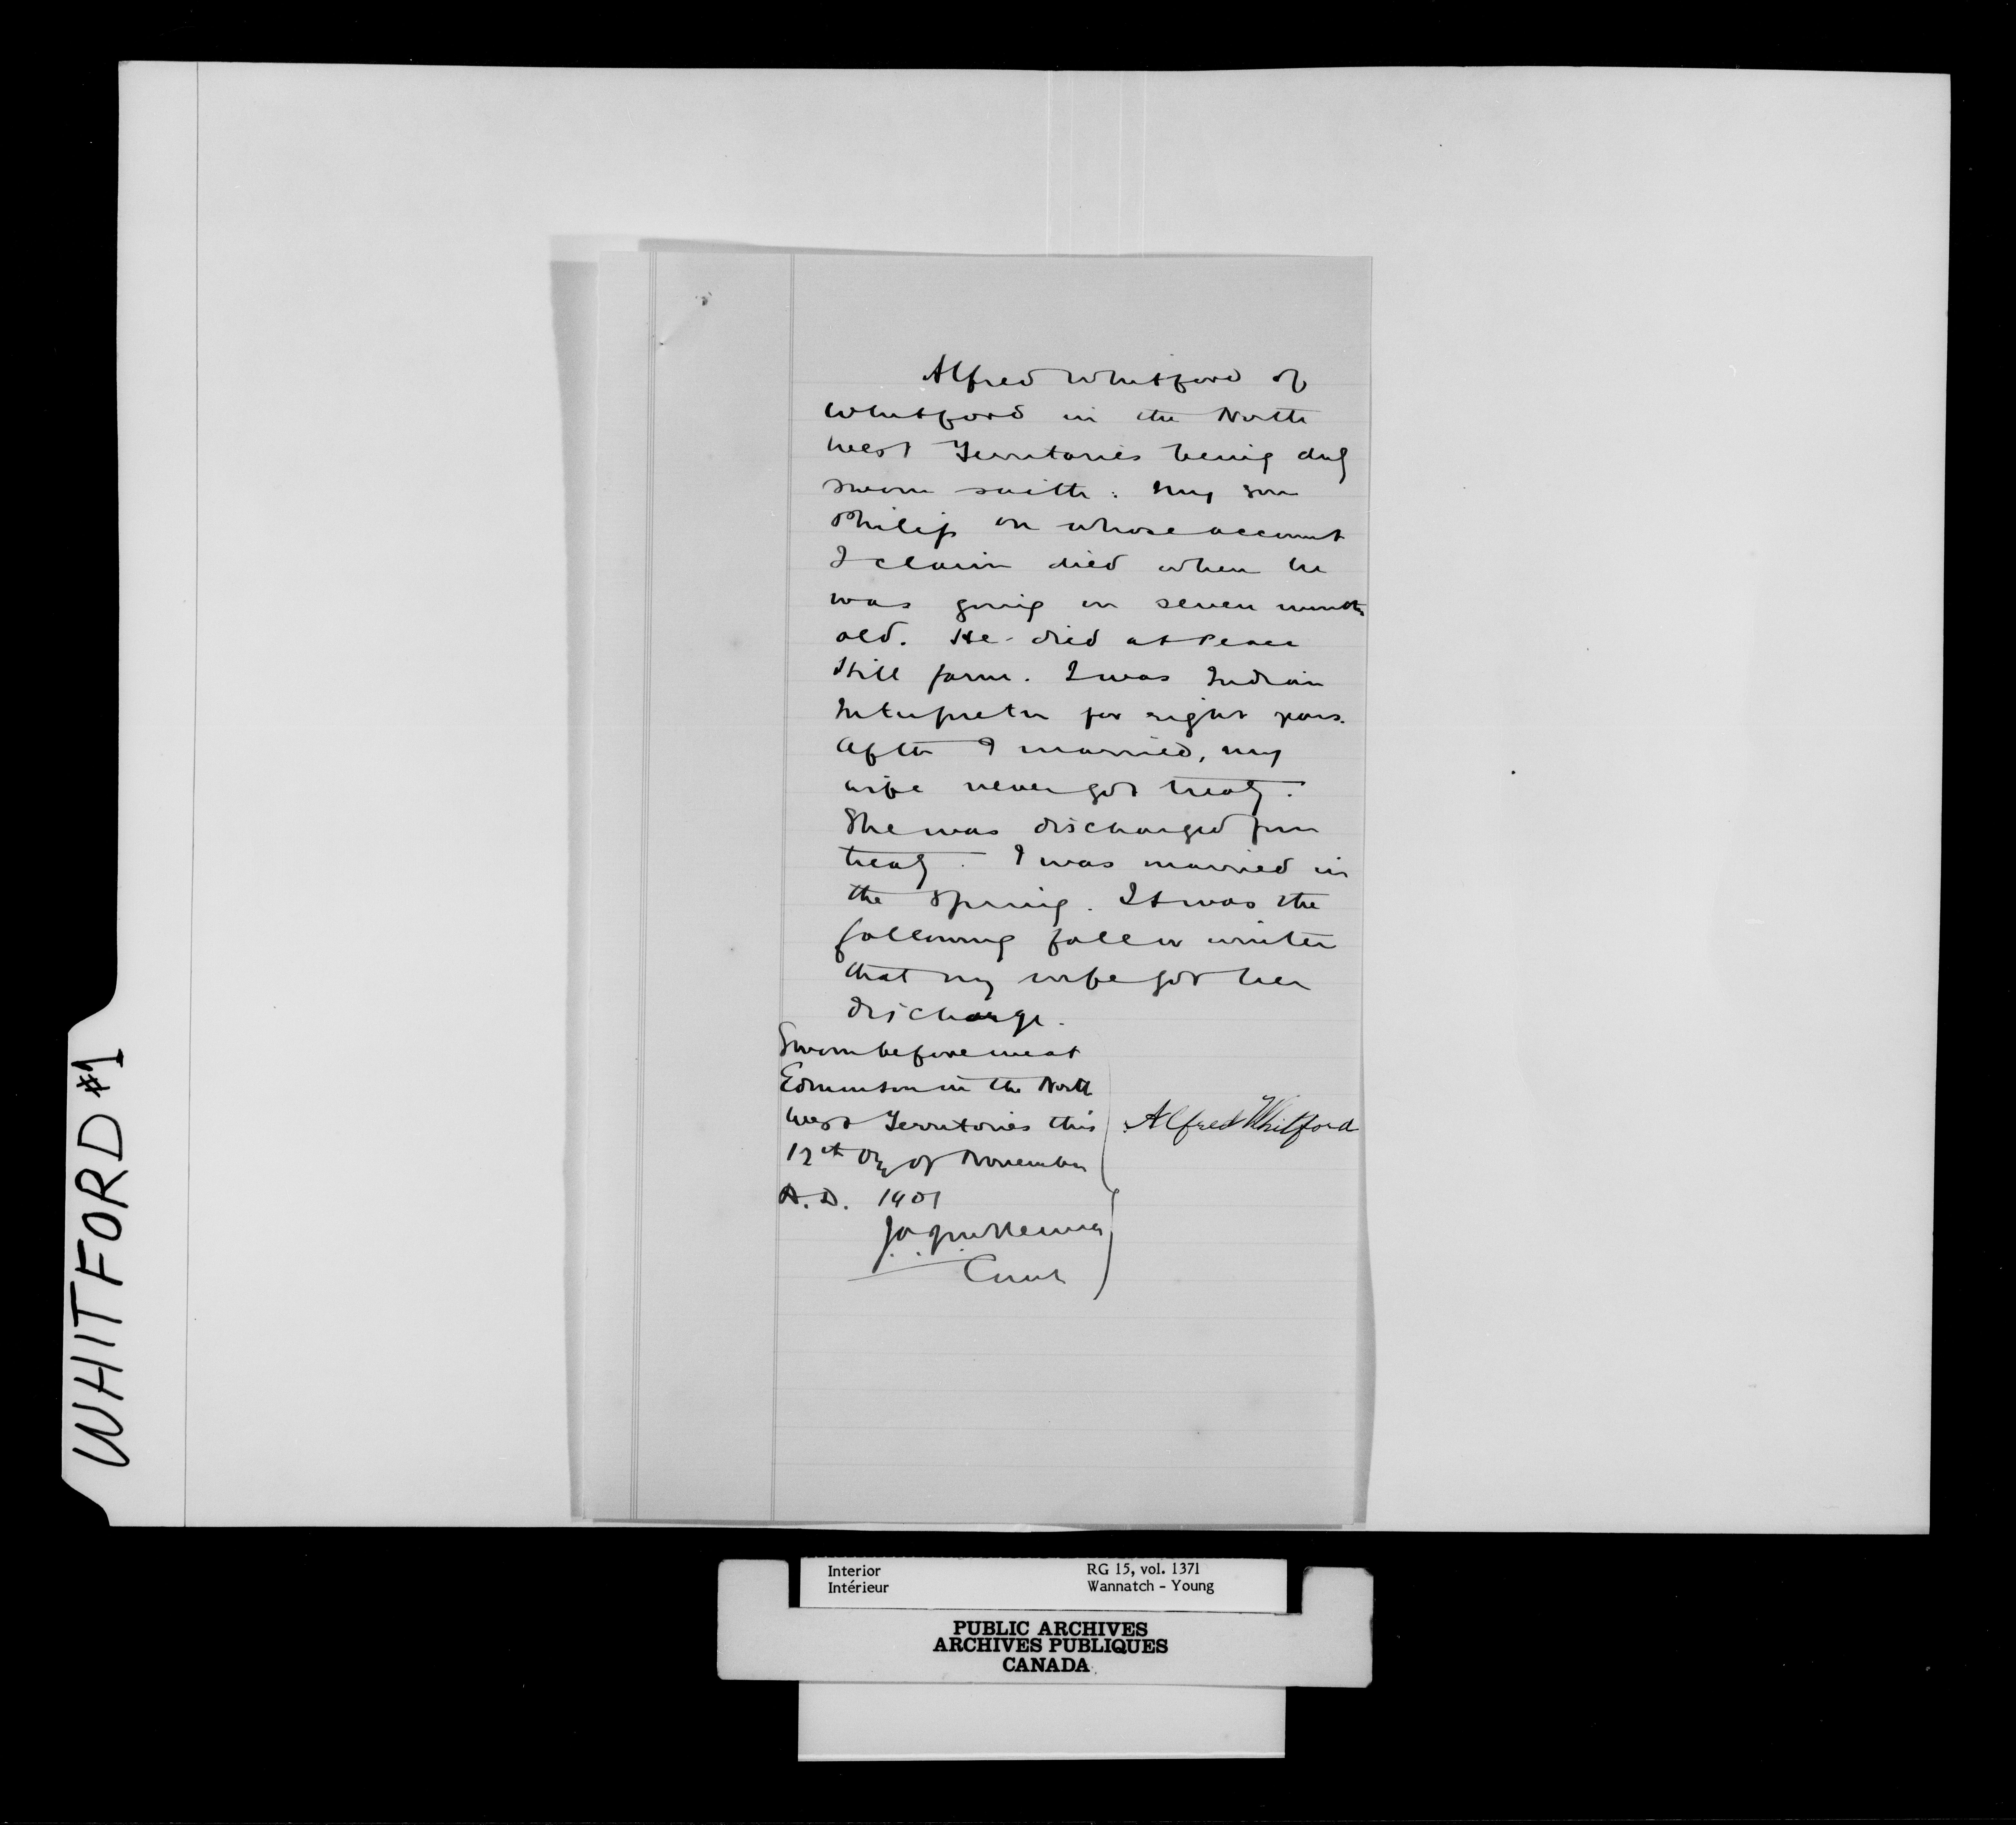 Alfred Whitford of
Whitford in the North
West Territories being duly
sworn saith: My son
Philip on whose account
I claim died when he
was going on seven months
old. He died at Peace
Hill farm. I was Indian
Interpreter for eight years.
After I married, my
wife never got treaty.
She was discharged from
treaty. I was married in
the Spring. It was the
following fall or winter
that my wife got her
discharge.
Sworn before me at
Edmonton in the North
West Territories this
12th Day of November
A.D. 1901
Alfred Whitford
WHITFORD #1
Interior
Intérieur
RG 15, vol. 1371
Wannatch - Young
PUBLIC ARCHIVES
ARCHIVES PUBLIQUES
CANADA